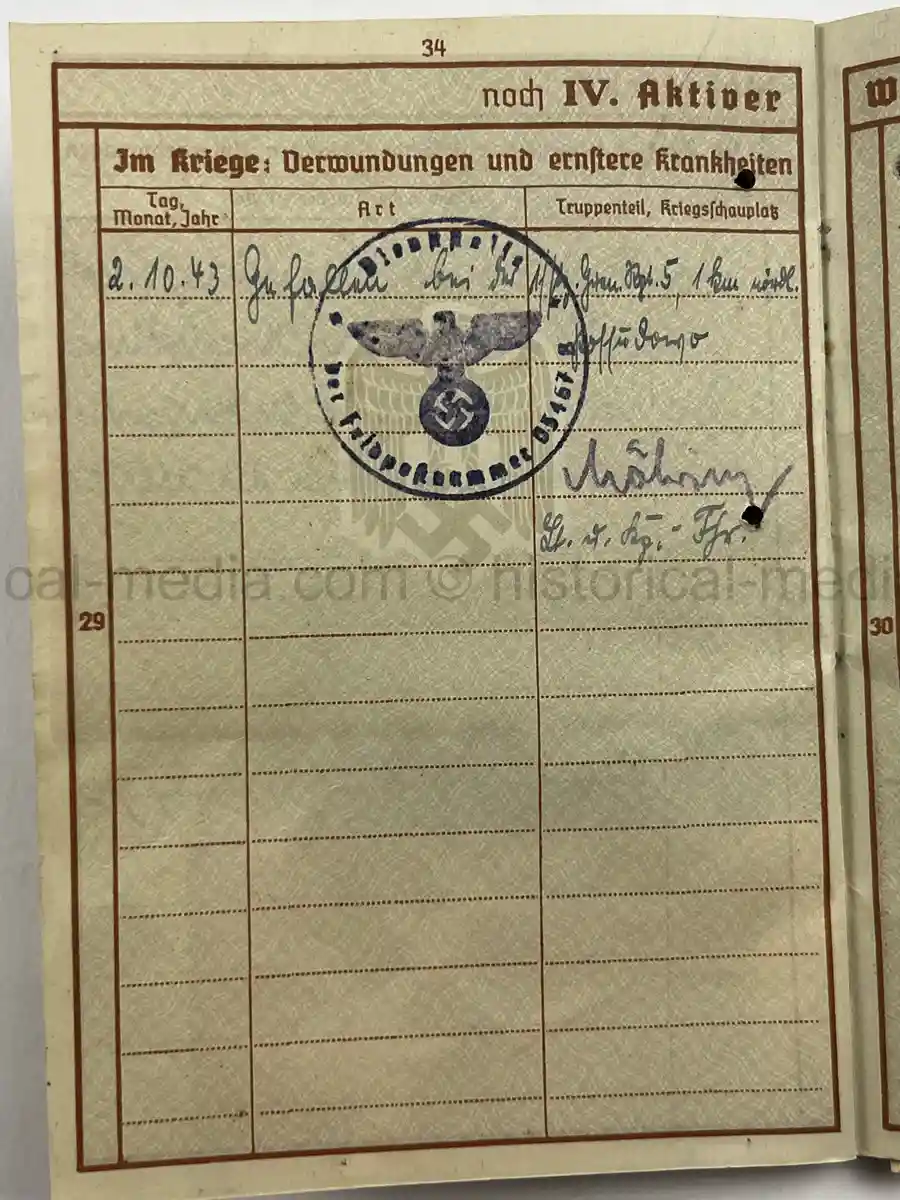 34
noch IV. Aktiver
Im Kriege: Verwundungen und ernstere Krankheiten
Tag, Monat, Jahr
Art
Truppenteil, Kriegsschauplatz
2. 10. 43 Gefallen bei der Gren. Rgt. 5, 1 km nördl.
Dienststelle
der Feldpostnummer 03467 B
Lt. u. Kp.-Fhr.
cal-media.com © historical-medi
29
W
30